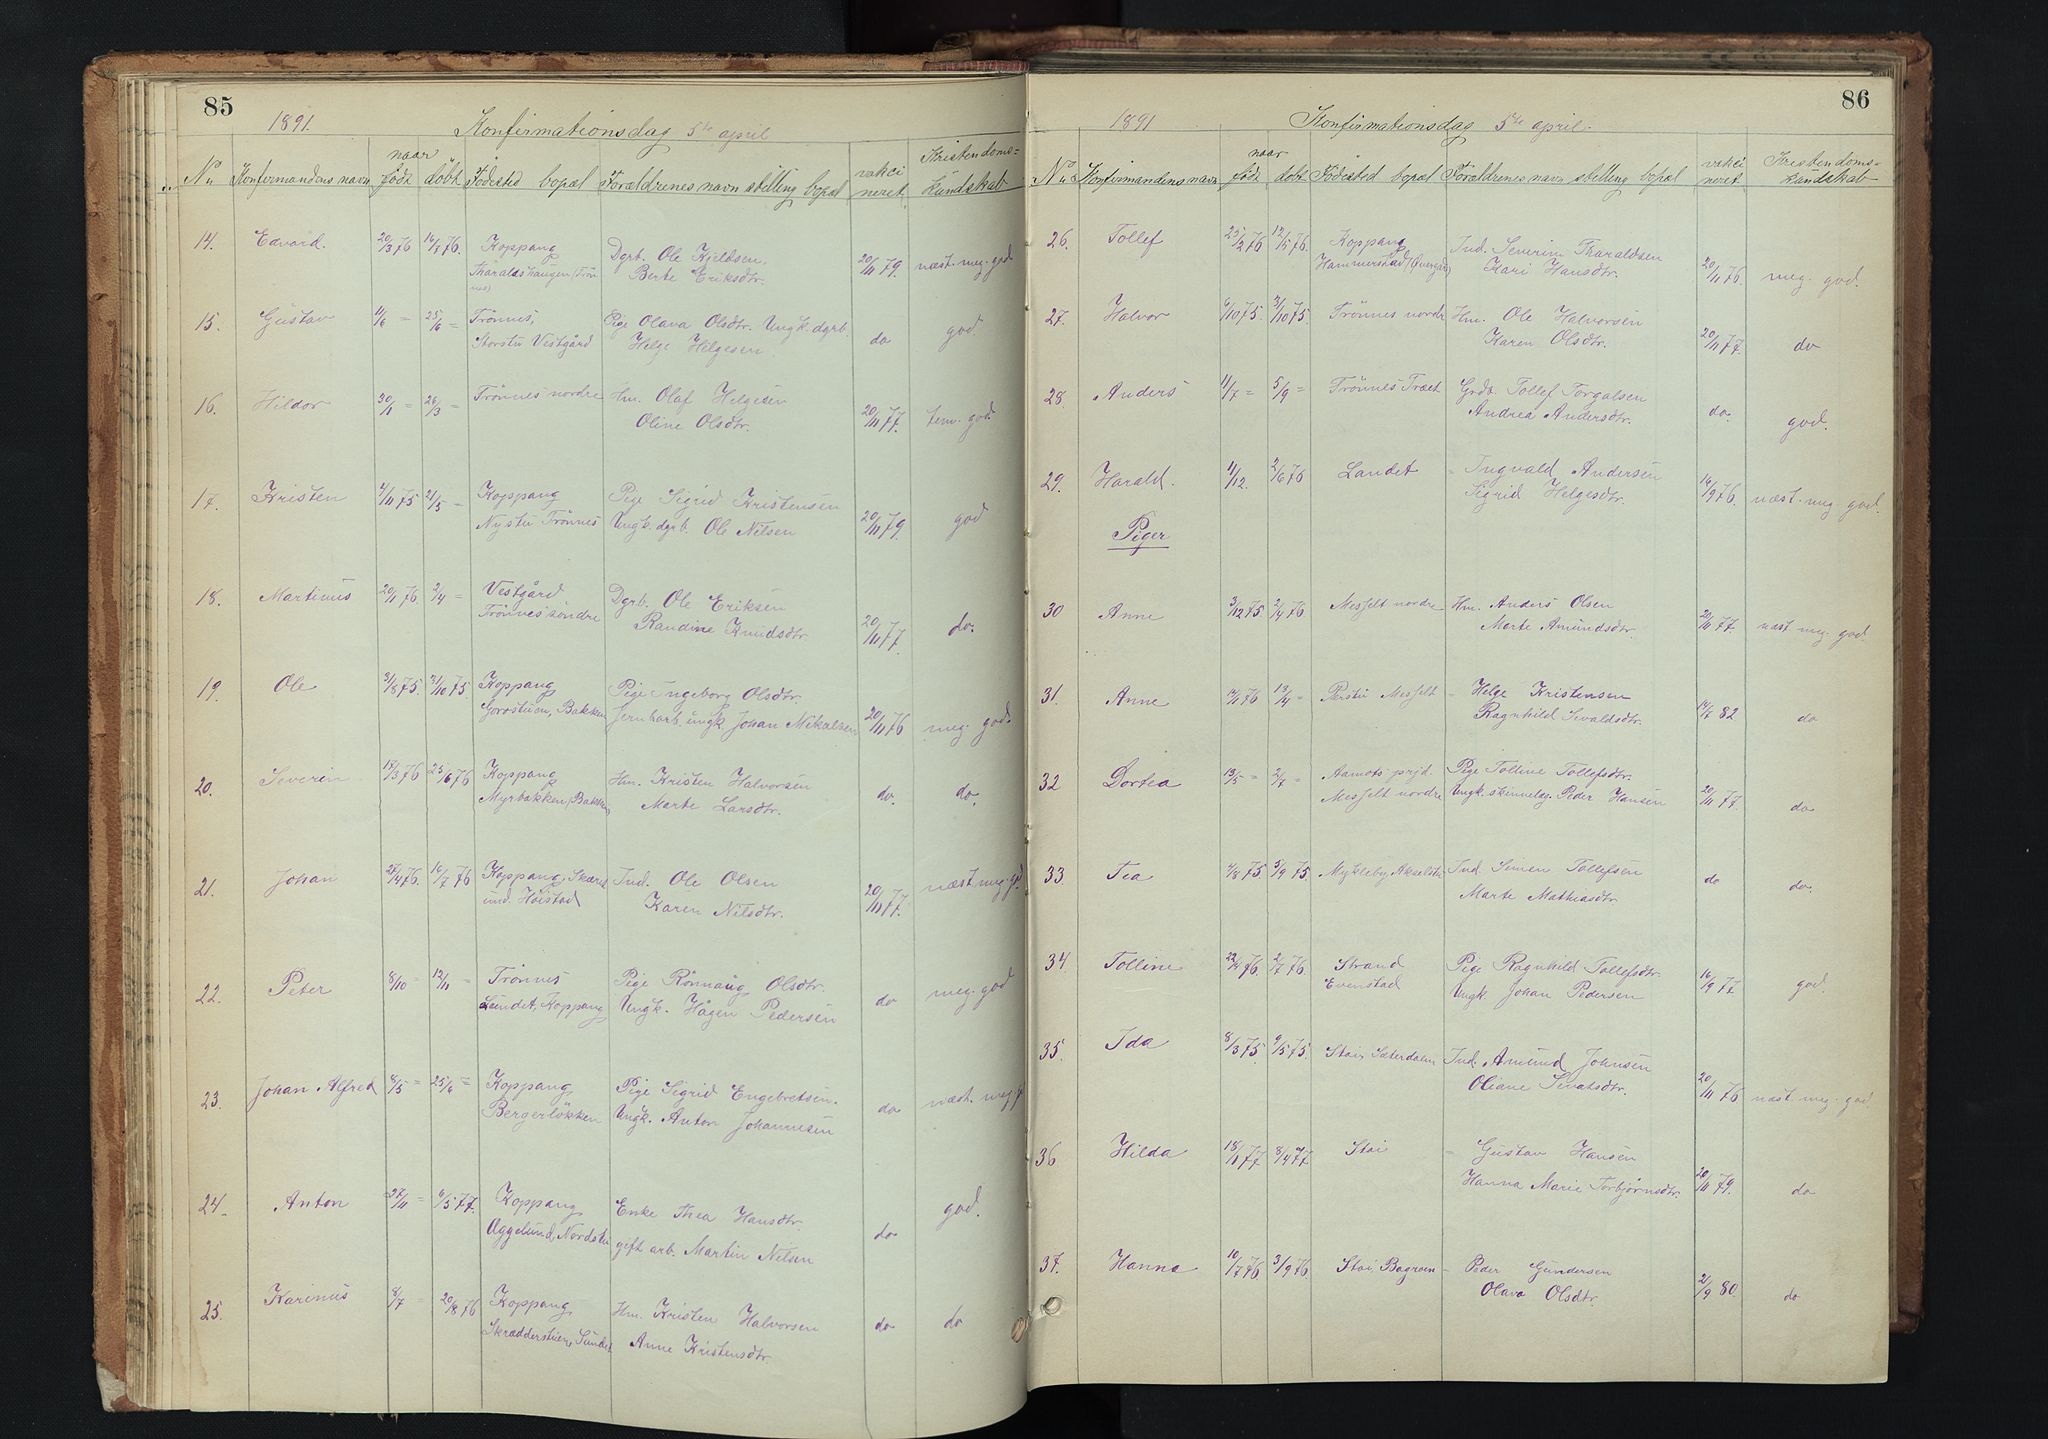 85
1891.
Konfirmationsdag 5te april
No Konfirmandens navn naar født døbt Fødested bopæl Forældrenes navn stilling bopæl vakcineret Kristendomskundskab
14. Edvard. 20/3 76 16/7 76. Koppang Dgrb. Ole Kjeldsen, 20/11 79. næst. meg. god
Tharaldshaugen (Trönnes) Berte Eriksdtr.
15. Gustav 11/6 = 25/6 = Trönnes, Pige Olava Olsdtr. Ungk. dgrb. do god
Storstu Vestgård Helge Helgesen.
16. Hildor 30/1 = 26/3 = Trönnes nordre Hm. Olaf Helgesen 20/11 77. tem. god.
Oline Olsdtr.
17. Kristen 4/11 75 21/5 = Koppang Pige Sigrid Kristensen 20/11 79. god
Nystu Trönnes Ungk. dgrb. Ole Nilsen
18. Martinus 20/1 76 2/4 = Vestgård Dgrb. Ole Eriksen 20/11 77. do.
Trönnes söndre Randine Knudsdtr.
19. Ole 31/8 75. 31/10 75 Koppang Pige Ingeborg Olsdtr. 20/11 76 meg. god.
Gorostuen, Bakken Jernbarb. ungk. Johan Mikalsen
20. Severin 18/3 76 25/6 76 Koppang Hm. Kristen Halvorsen do. do.
Myrbakken, Bakken Marte Larsdtr.
21. Johan 28/4 76. 16/7 76 Koppang, Skæret Ind. Ole Olsen 20/11 77. næst meg. gd.
und. Hoistad Karen Nilsdtr.
22. Peter 8/10 = 12/11 = Trönnes Pige Rönnaug Olsdtr. do meg. god
Sundet, Koppang Ungk. Hågen Pedersen
23. Johan Alfred 8/5 = 25/6 = Koppang Pige Sigrid Engebretsen. do næst. meg. g
Bergerlökken Ungk. Anton Johannesen
24. Anton 27/11 = 6/5 77. Koppang Enke Thea Hansdtr. do god.
Oggelund, Nordstu gift arb. Martin Nilsen
25. Karinus 8/7 = 20/8 76 Koppang Hm. Kristen Halvorsen do do
Skrædderstuen, Sundet Anne Kristensdtr.
86
1891
Konfirmationsdag 5te april.
No Konfirmandens navn naar født døbt Fødested bopæl Forældrenes navn stilling bopæl vakcineret. Kristendomskundskab
26. Tollef 25/2 76 12/5 76. Koppang Ind. Severin Tharaldsen 20/11 76. meg. god.
Hammerstad (Övergård) Kari Hansdtr.
27. Halvor 6/10 75. 3/10 75. Trönnes nordre Hm. Ole Halvorsen 20/11 77. do
Karen Olsdtr.
28. Anders 11/7 = 5/9 = Trönnes Træet Grdb. Tollef Torgalsen do. god.
Andrea Andersdtr.
29. Harald. 11/12. 2/6 76 Landet = Ingvald Andersen 14/9 76. næst. meg. god.
Sigrid Helgesdtr.
Piger
30 Anne 3/12 75. 2/4 76 Messelt nordre Hm. Anders Olsen 20/11 77. næst meg. god.
Marte Amundsdtr.
31. Anne 14/1 76 13/4 = Perstu Messelt = Helge Kristensen 14/7 82 do
Ragnhild Sevaldsdtr.
32 Dortea 13/5 = 2/7 = Aamots prjd. Pige Tolline Tollefsdtr. 20/11 77. do
Messelt nordre Ungk. skinnelæg. Peder Hansen
33. Tea 4/8 75 5/9 75. Mykleby, Akselstu Ind. Simen Tollefsen do do.
Marte Mathiasdtr.
34. Tolline 22/4 76. 2/7 76. Strand Pige Ragnhild Tollefsdtr. 16/9 77. god.
Evenstad Ungk. Johan Pedersen
35. Ida 8/3 75 9/5 75. Stai, Sæterdalen Ind. Amund Johnsen 20/11 76 næst. meg. god.
Oliane Sevatsdtr.
36 Hilda 18/1 77 8/4 77. Stai = Gustav Hansen 20/11 79. do
Hanna Marie Torbjørnsdtr.
37. Hanna 10/7 76 3/9 76. Stai, Bagroen = Peder Gundersen 21/9 80 do
Olava Olsdtr.